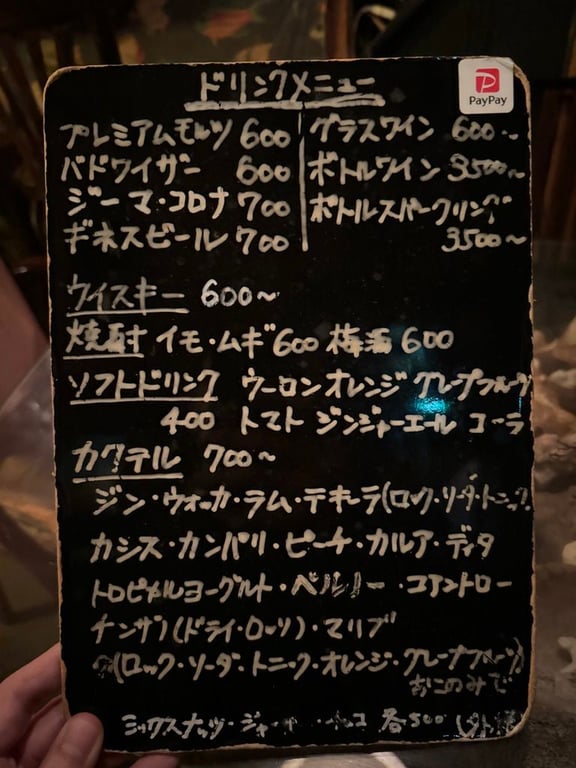 ドリンクメニュー
PayPay
プレミアムモルツ 600
バドワイザー 600
ジーマ・コロナ 700
ギネスビール 700
グラスワイン 600~
ボトルワイン 3500~
ボトルスパークリング
3500~
ウイスキー 600~
焼酎 イモ・ムギ600 梅酒 600
ソフトドリンク ウーロン オレンジ グレープフルーツ
400 トマト ジンジャーエール コーラ
カクテル 700~
ジン・ウォッカ・ラム・テキーラ(ロック・ソーダ・トニック
カシス・カンパリ・ピーチ・カルア・ディタ
トロピカルヨーグルト・・コアントロー
チンザノ(ドライ・ロッソ)・マリブ
(ロック・ソーダ・トニック・オレンジ・グレープフルーツ)
おこのみで
ミックスナッツ・各500